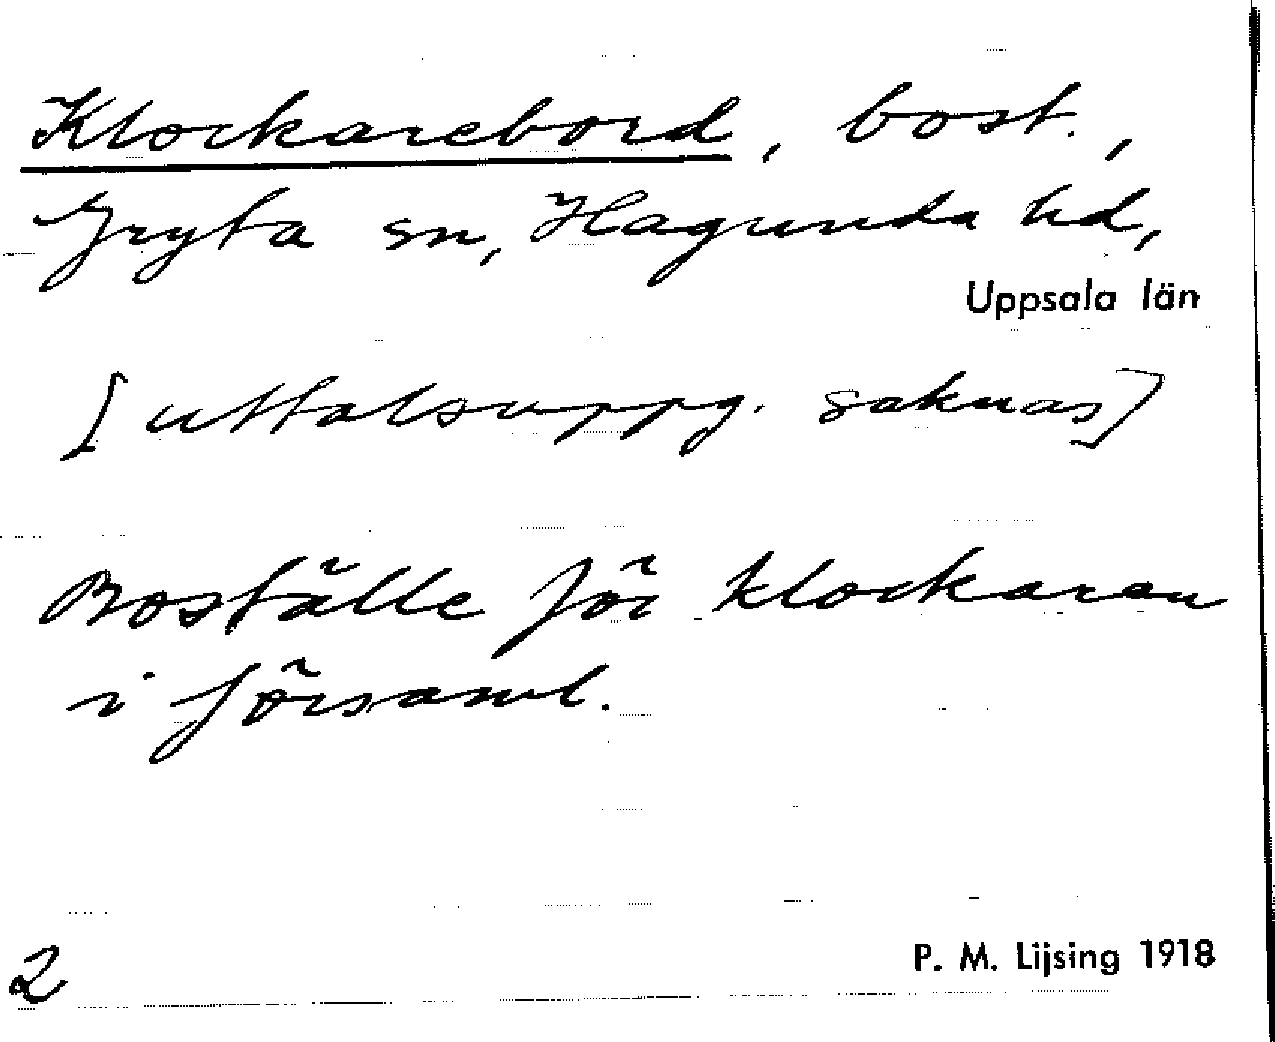 Klockarebord, bost.,
Gryta sn, Hagunda hd,
Uppsala län
[uttalsuppg. saknas]
Boställe för klockaren
i församl.
2
P. M. Lijsing 1918